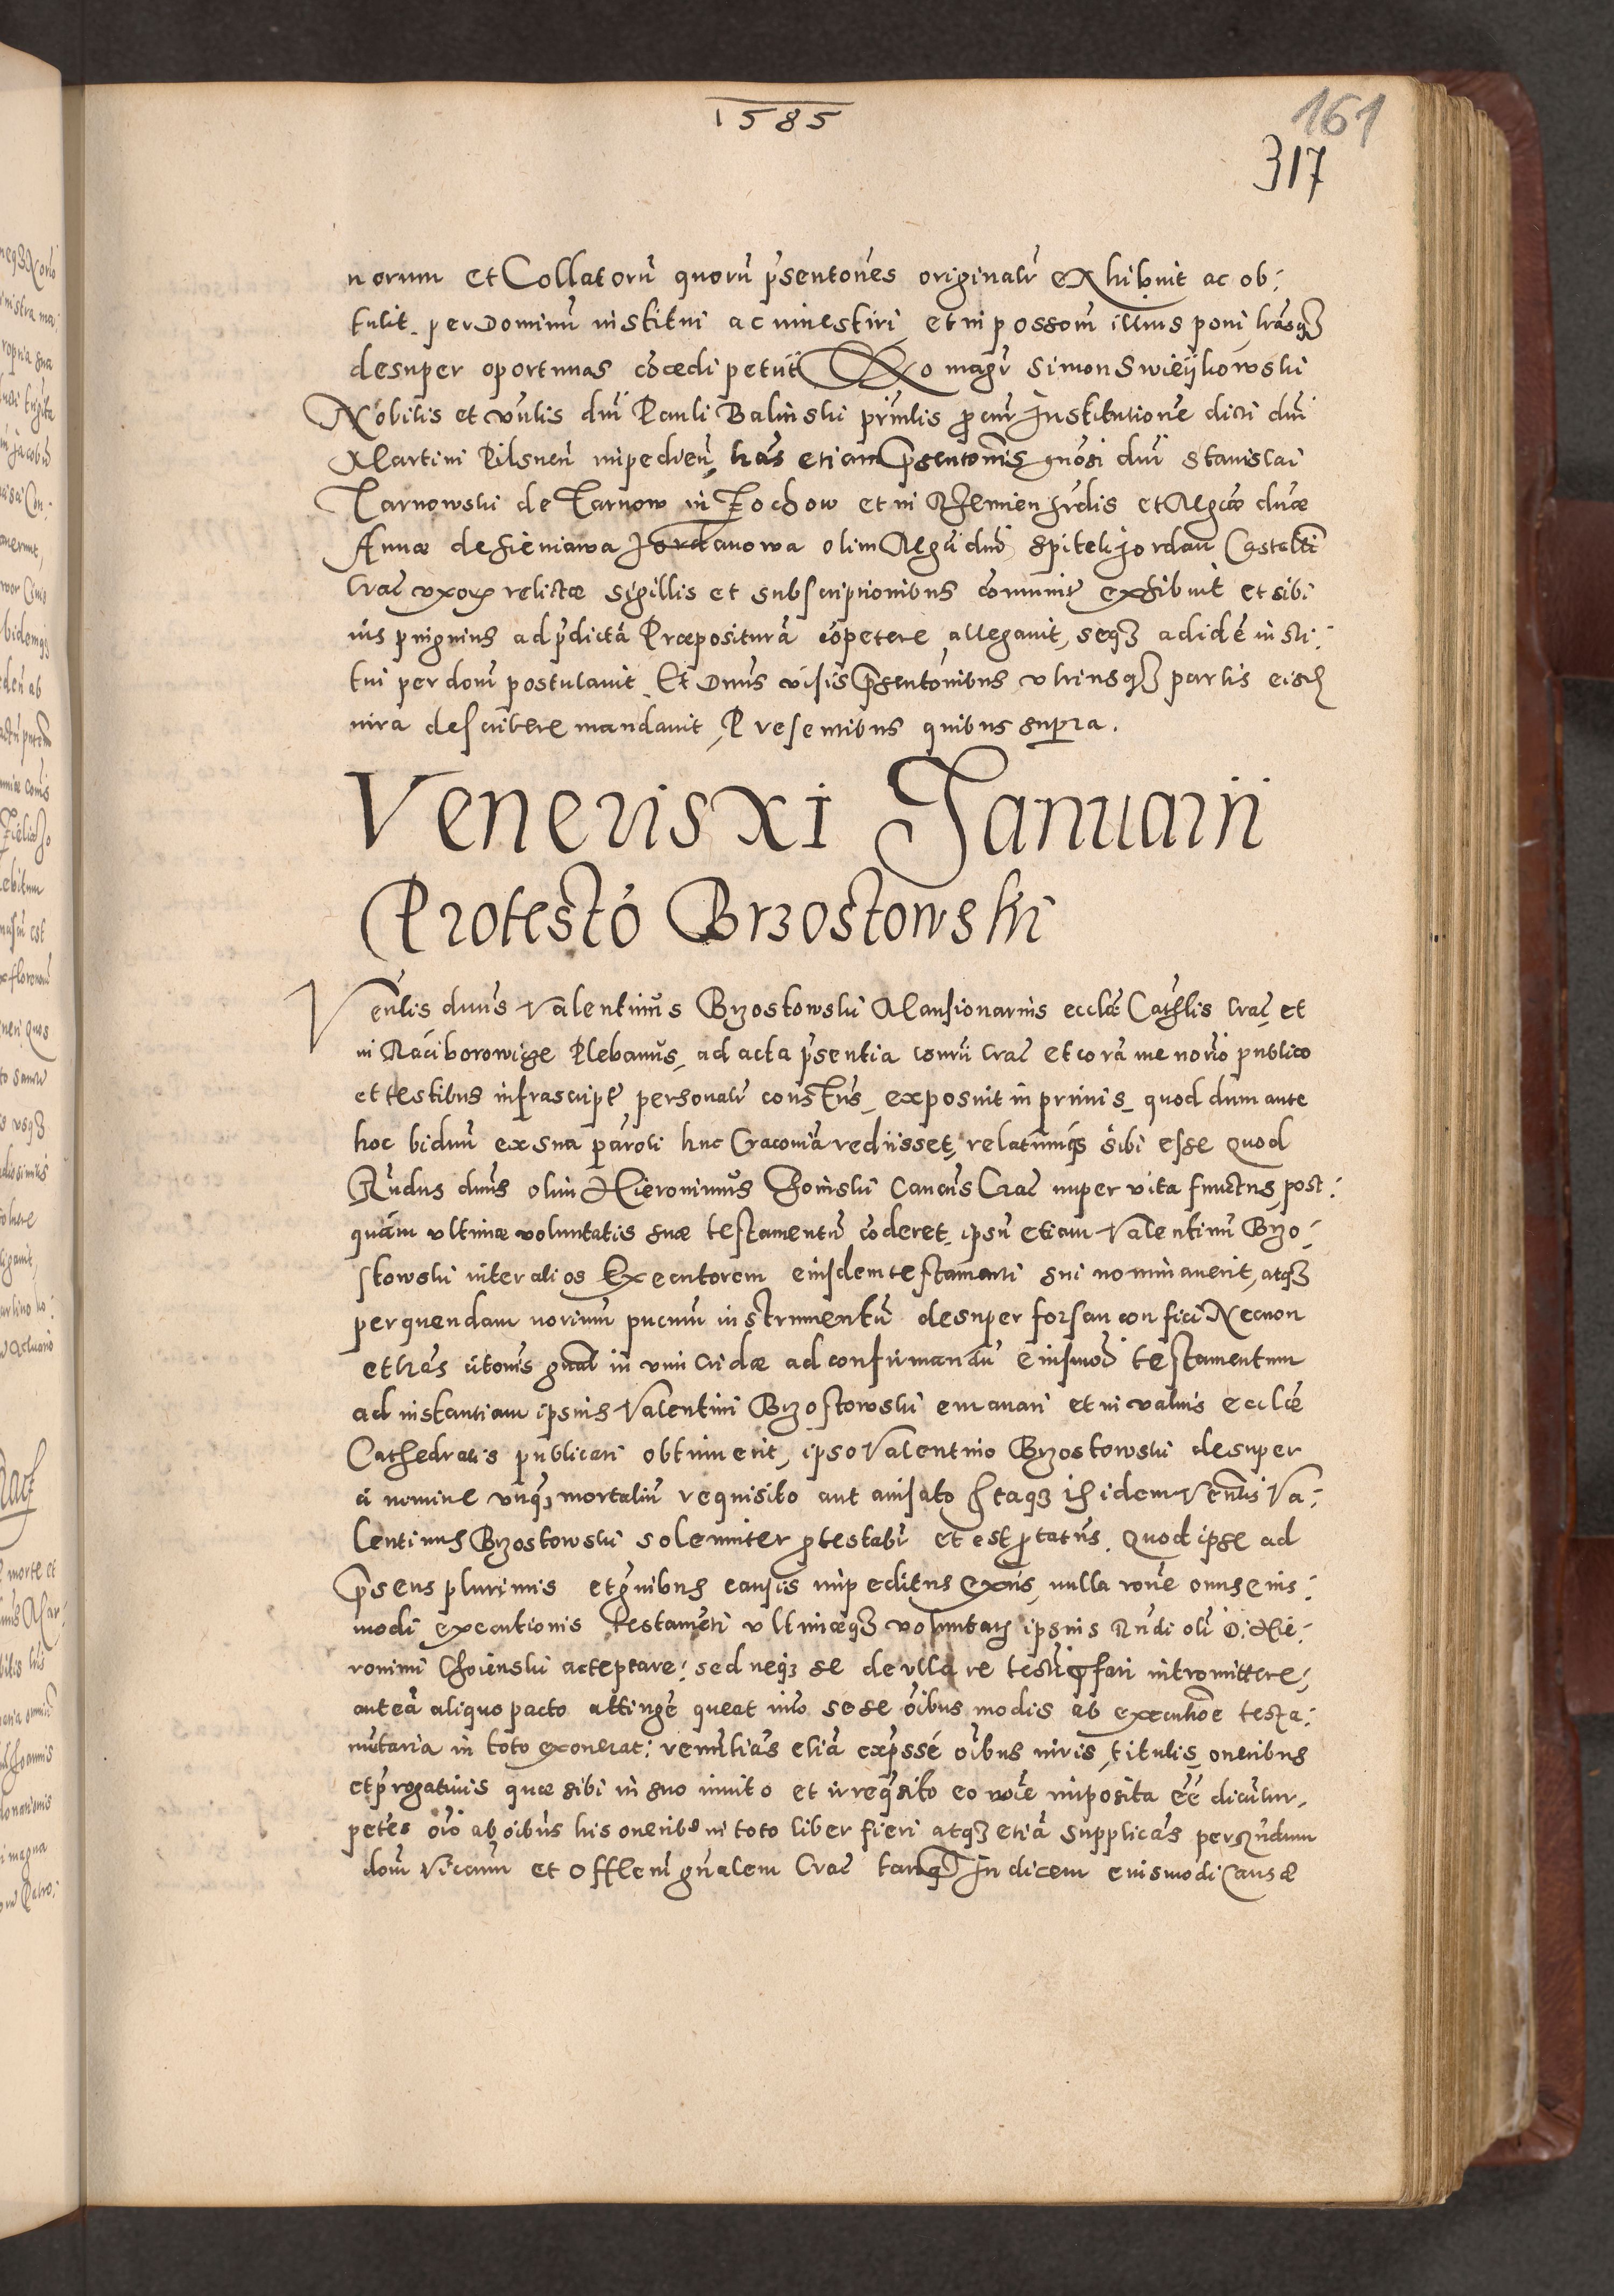 1585
161
317
norum et Collatorū quorū p̄sentones originalr̄ exhibuit ac ob:
tulit per Dominū institui ac investiri, et in possom̄ illius poni, lrāsqʒ
desuper oportunas cōcedi petiit Quo magr̄ Simon Swieijkowski
Nobilis et v̄ulis dnī Pauli Balinski prīnlis p̄cur Institutione dicti dnī
Martini Pilsnen̄ impedien̄ lrās etiam p̄sentonīs gnosi dnī Stanislai
Tarnowski de Tarnow in Zochow et in Rzemien hrdis et Mgcæ dnæ
Annæ de Sieniawa Jordanowa olim Mgci dnī Spitek Jordan Castellī
Crac̄ uxoris relictæ sigillis et subscriptionibus cōmunit̄ exhibuit et sibi
ius pinguius ad p̄dictā Præpositurā cōpetere allegavit, seqʒ ad idē insti:
tui per dom̄ postulavit Et Dnus visis p̄sentōnibus utriusqʒ partis eisdʒ
iura describere mandavit, Presentibus quibus supra.
Veneris XI Januarii
Protestō Brzostowski
Venlis dnūs Valentinūs Brzostowski Mansionarius ecclæ Cathlis Crac̄ et
in Raciborowicze Plebanūs, ad acta p̄sentia consrii Crac̄ et corā me norio publico
et testibus infrascript̄ personalr̄ constūs, exposuit in primis, quod dum ante
hoc biduū ex sua parōli huc Cracoviā rediisset, relatumqʒ sibi esse quod
Rndus dnūs olim Hieronimūs Choinski Canciis Crac̄ nuper vita functus, post:
quām ultimæ voluntatis suæ testamentū cōderet, ipsū etiam Valentinū Brzo:
stowski inter alios Executorem eiusdem testamenti sui nominaverit, atqʒ
per quendam noriūm pucum instrumentū desuper forsan confici Necnon
et lrās citonis gnal in vim cridæ ad confirmandū eiusmodi testamentum
ad instantiam ipsius Valentini Brzostowski emanari et in valvis ecclæ
Cathedralis publicari obtinuerit, ipso Valentino Brzostowski desuper
a nomine unqʒ mortaliū requisito aut avisato Itaqʒ is idem Venlis Va:
lentinus Brzostowski solenniter p̄testabr̄ et est p̄tatus. Quod ipse ad
p̄sens plurimis et gūibus causis impeditus exn̄s, nulla rone onus eius:
modi executionis testamēti ultimæqʒ voluntatis ipsius Rndi oli D. Hie:
ronimi Choienski acceptare: sed neqʒ se de ulla re testi fari intromittere,
aut eā aliquo pacto attingē queat imo sese oibus modis ab executioē testa:
mētaria in toto exonerat: renutiās etiā exp̄ssē oibus iuris, titulis, oneribus
et p̄rogativis quæ sibi in suo invito et irreqsito eo nōie imposita ēē dicūtur,
petēs oīo ab oībus his oneribˢ in toto liber fieri atqʒ etiā supplicās per Rndum
dom̄ Vicariū et Offlem gn̄alem Crac̄ tanqʒ Judicem eiusmodi Causæ